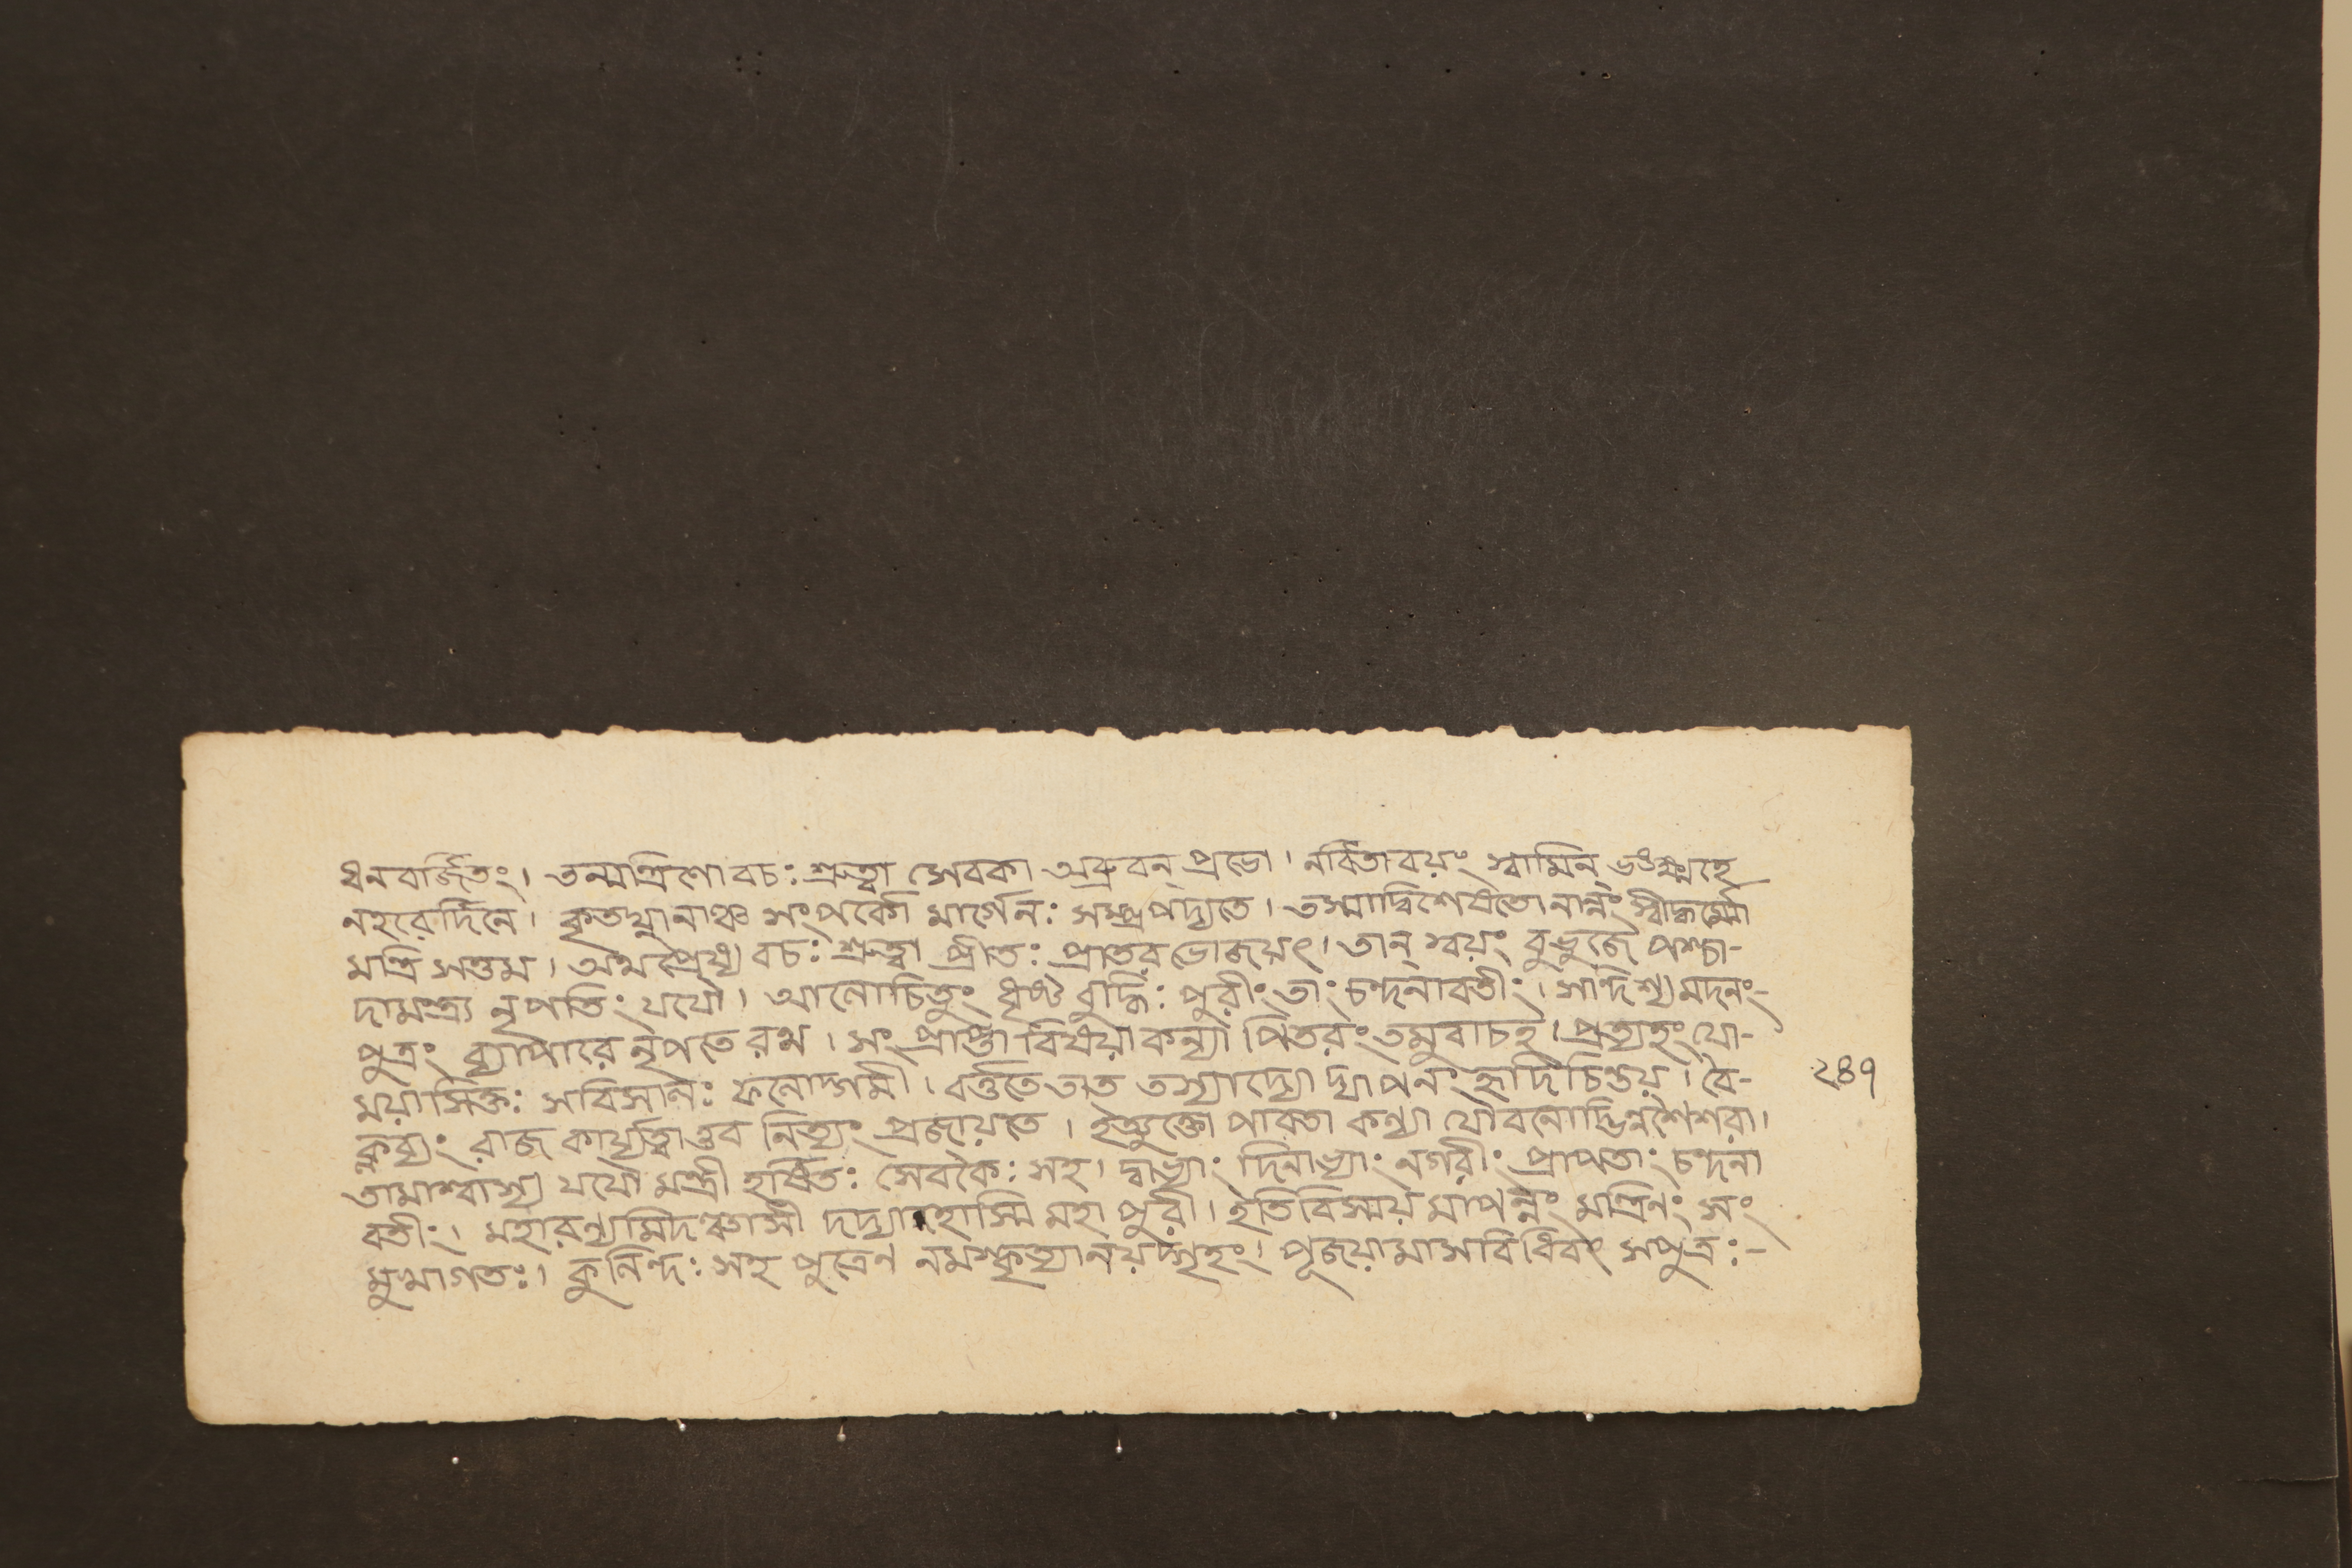 ধনবর্জিতং। তন্মন্ত্রিণো বচঃ শ্রুত্বা সেবকা অব্রুবন্ প্রভো। নর্বিতাবয়ং স্বামিন্ ভঙক্ষ্মহে
নহরের্দিনে। কৃতঘ্নানাঞ্চ সংপর্কো মার্গেনঃ সম্প্রপদ্যতে। তস্মাদ্বিশেষতোনান্নং
মন্ত্রিসত্তম। অথপ্রেষ্য বচঃ শ্রুত্বা প্রীতঃ প্রাতরভোজয়ৎ। তান্ স্বয়ং বুভুজে পশ্চা-
দামন্ত্র্য নৃপতিং যযৌ। আলোচিতুং ধৃষ্ট বুদ্ধিঃ পুরীং তাং চন্দনাবতীং। সন্দিশ্য মদনং-
পুত্রং ব্যাপারে নৃপতেরথ। সংপ্রাপ্তা বিষয়া কন্যা পিতরং তমুবাচহ। প্রত্যহং যো-
ময়াসিক্তঃ সবিসালঃ ফলোদ্গমী। বর্ত্ততে তাত তস্যাদ্যো দ্যাপনং হৃদি চিন্তয়। বৈ- ২৪৭
ক্লব্যং রাজকার্য্যত্বাত্তব নিত্যং প্রজায়তে। ইত্যুক্তো পাবতা কন্যা যৌবনোদ্ভিন্নশৈশবা।
তামাশ্বাস্য যযৌ মন্ত্রী হর্ষিতঃ সেবকৈঃ সহ। দ্বাভ্যাং দিনাভ্যাং নগরীং প্রাপতাং চন্দনা
বতীং। মহারণ্যমিদঞ্চাসী মহাপুরী। ইতিবিস্ময়মাপন্নং মন্ত্রিণং সং
মুখাগতঃ। কুলিন্দঃ সহ পুত্রেণ নমস্কৃত্যানয়দ্গৃহং। পূজয়ামাসবিধিবৎ সপুত্রঃ-